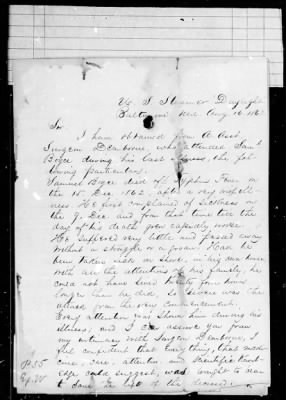 U. S. Steamer Daylight
Baltimore Md. Aug 16
Sir
I have obtained from A. Asst.
Surgeon Dearborne, who attended Saml
Boyce during his last illness, the fol-
lowing particulars.
Samuel Boyce died of Typhus Fever on
the 15 Dec 1862, after a very brief ill-
ness. He first complained of sickness on
the 9. Dec and from that time till the
day of his death grew rapidly worse.
He suffered very little and passed away
without a struggle or a groan. Had he
been taken sick on shore, in his own home
with all the attentions of his family, he
could not have lived twenty four hours
longer than he did, so severe was the
attack from the very commencement.
Every attention was shown him during his
illness, and I can assure you from
my intimacy with Surgeon Dearborne, I
feel confident that everything, that medi-
cine, care, attention, and Scientific Know-
ledge could suggest, was sought to near
to save the life of the deceased.
P 35